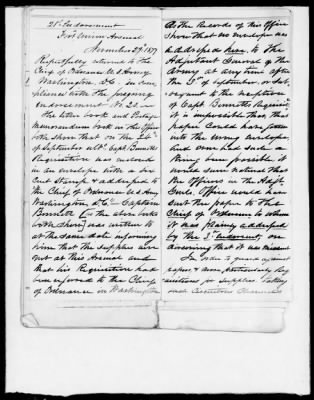 21st Endorsement
Fort Union Arsenal
November 29th 1877
Respectfully returned to the
Chief of Ordnance U.S. Army
Washington D.C. in com-
pliance with the foregoing
endorsement No. 20.
The letter book and Postage
Memorandum book in this Office
both show that on the 26th
of September ult. Capt. Bennetts
Requisition was enclosed
in an envelope with a six
cent Stamp & addressed to
the Chief of Ordnance U.S. Army
Washington D.C. Captain
Bennett (as the above books
both show) was written to
at the same date informing
him that the supplies were
not at this Arsenal and
that his Requisition had
been referred to the Chief
of Ordnance in Washington
As the Records of this Office
show that no envelope was
addressed here to the
Adjutant General of the
Army at any time after
the 3rd of September
to the reception
of Capt. Bennetts Requisition
it is impossible that that
paper could have gotten
into the wrong envelope
And even had such a
thing been possible it
would seem natural that
the Officers in the Adjt.
Genls. Office would have
sent the paper to the
Chief of Ordnance to whom
it was plainly addressed
by the 3rd Endorsement, on
discovering that it was
In order to guard against
papers & more particularly Req-
uisitions for supplies